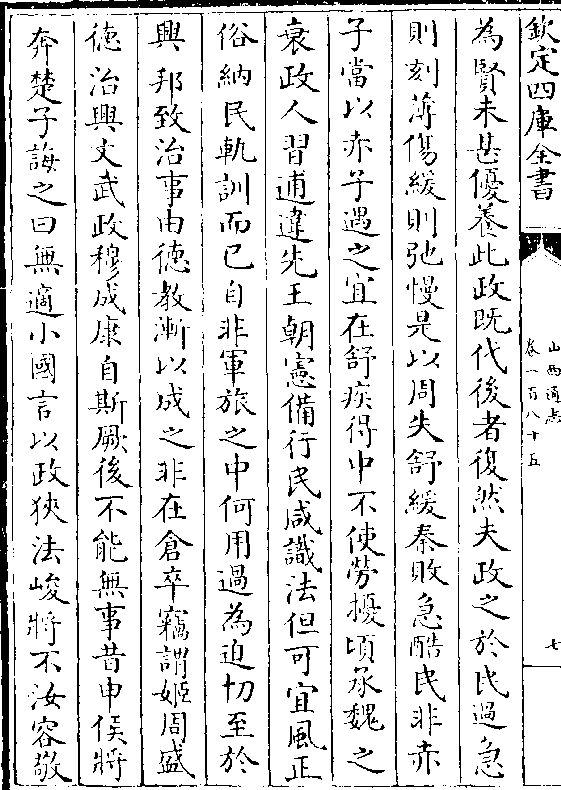 欽定四庫全書
山西通志
卷一百八十五
七
為賢未甚優養此政既代後者復然夫政之於民過急
則刻薄傷緩則弛慢是以周失舒緩秦敗急酷民非赤
子當以赤子遇之宜在舒疾得中不使勞擾頃承魏之
衰政人習逋違先王朝憲備行民咸識法但可宜風正
俗納民軌訓而已自非軍旅之中何用過為迫切至於
興邦致治事由徳教漸以成之非在倉卒竊謂姬周盛
徳治興文武政穆成康自斯厥後不能無事昔申侯將
奔楚子誨之曰無適小國言以政狹法峻將不汝容敬